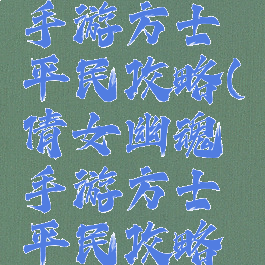 手游方士
平民攻略(
倩女幽魂
手游方士
平民攻略